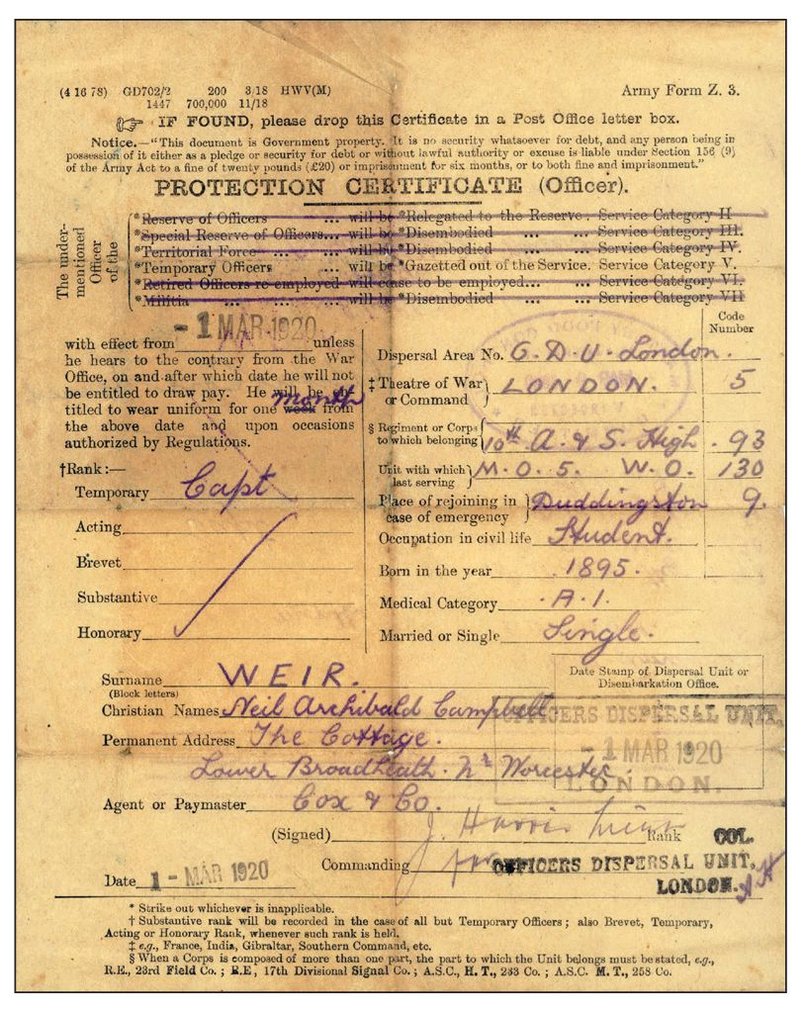 (4 16 78) GD702/2 200 3/18 HWV(M) Army Form Z. 3.
1447 700,000 11/18
IF FOUND, please drop this Certificate in a Post Office letter box.
Notice.—"This document is Government property. It is no security whatsoever for debt, and any person being in
possession of it either as a pledge or security for debt or without lawful authority or excuse is liable under Section 156 (9)
of the Army Act to a fine of twenty pounds (£20) or imprisonment for six months, or to both fine and imprisonment."
PROTECTION CERTIFICATE (Officer).
The under-
mentioned
Officer
of the
*Reserve of Officers ... will be *Relegated to the Reserve. Service Category II
*Special Reserve of Officers... will be *Disembodied ... ... Service Category III.
*Territorial Force ... ... will be *Disembodied ... ... Service Category IV.
*Temporary Officers ... will be *Gazetted out of the Service. Service Category V.
*Retired Officers re-employed will cease to be employed... ... Service Category VI.
*Militia ... ... ... will be *Disembodied ... ... Service Category VII
with effect from - 1 MAR 1920 unless
he hears to the contrary from the War
Office, on and after which date he will not
be entitled to draw pay. He will be en-
titled to wear uniform for one week month from
the above date and upon occasions
authorized by Regulations.
†Rank:—
Temporary Capt
Acting
Brevet
Substantive
Honorary
Code
Number
Dispersal Area No. G.D.U. London.
‡ Theatre of War
or Command LONDON. 5
§ Regiment or Corps
to which belonging 10th A. & S. High. 93
Unit with which
last serving M.O.5. W.O. 130
Place of rejoining in
case of emergency Duddingston 9.
Occupation in civil life Student.
Born in the year 1895.
Medical Category A.1.
Married or Single Single.
Surname WEIR.
(Block letters)
Christian Names Neil Archibald Campbell
Permanent Address The Cottage.
Lower Broadheath. Nr Worcester.
Agent or Paymaster Cox & Co.
Date Stamp of Dispersal Unit or
Disembarkation Office.
OFFICERS DISPERSAL UNIT,
- 1 MAR 1920
LONDON.
(Signed) J. Harris Rank COL.
Commanding for OFFICERS DISPERSAL UNIT,
LONDON.
Date 1 - MAR 1920
* Strike out whichever is inapplicable.
† Substantive rank will be recorded in the case of all but Temporary Officers; also Brevet, Temporary,
Acting or Honorary Rank, whenever such rank is held.
‡ e.g., France, India, Gibraltar, Southern Command, etc.
§ When a Corps is composed of more than one part, the part to which the Unit belongs must be stated, e.g.,
R.E., 23rd Field Co.; R.E, 17th Divisional Signal Co.; A.S.C., H.T., 233 Co.; A.S.C. M.T., 258 Co.